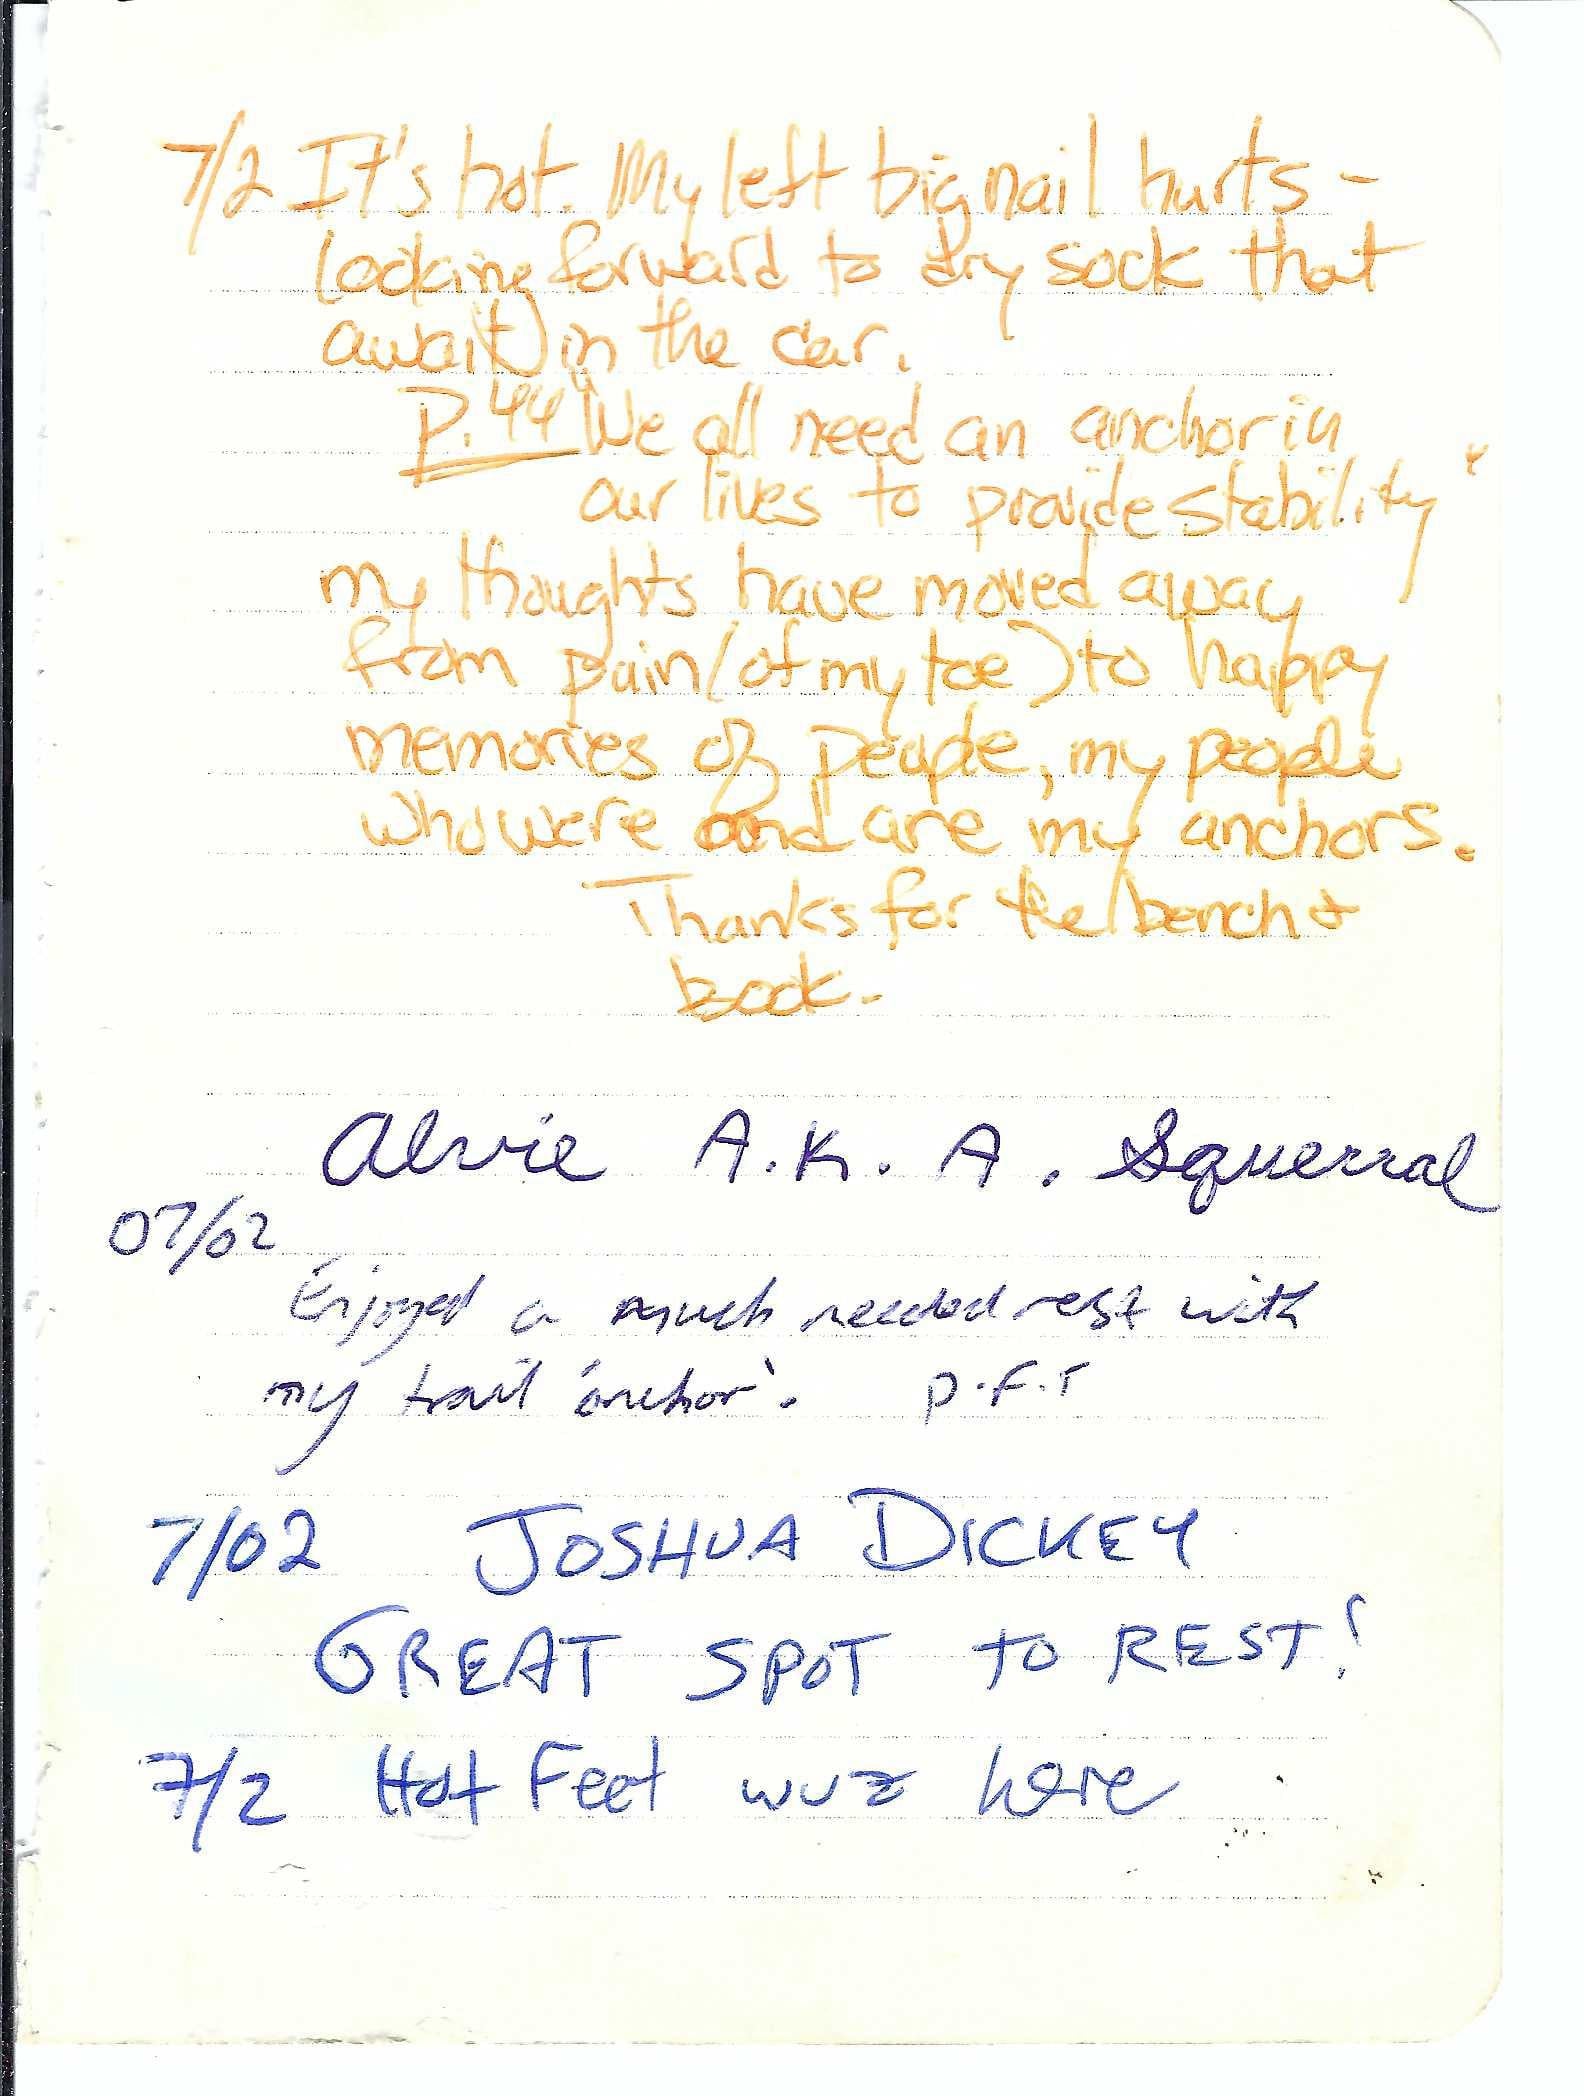 7/2 It's hot. My left big nail hurts -
looking forward to dry sock that
await in the car.
P. 44 "We all need an anchor in
our lives to provide stability"
my thoughts have moved away
from pain (of my toe) to happy
memories of people, my people
who were and are my anchors.
Thanks for the bench &
book.
Alvie A.K.A. Squerral
07/02
Enjoyed a much needed rest with
my trail 'anchor'. P.F.T
7/02 JOSHUA DICKEY
GREAT SPOT TO REST!
7/2 Hot Feet wuz here